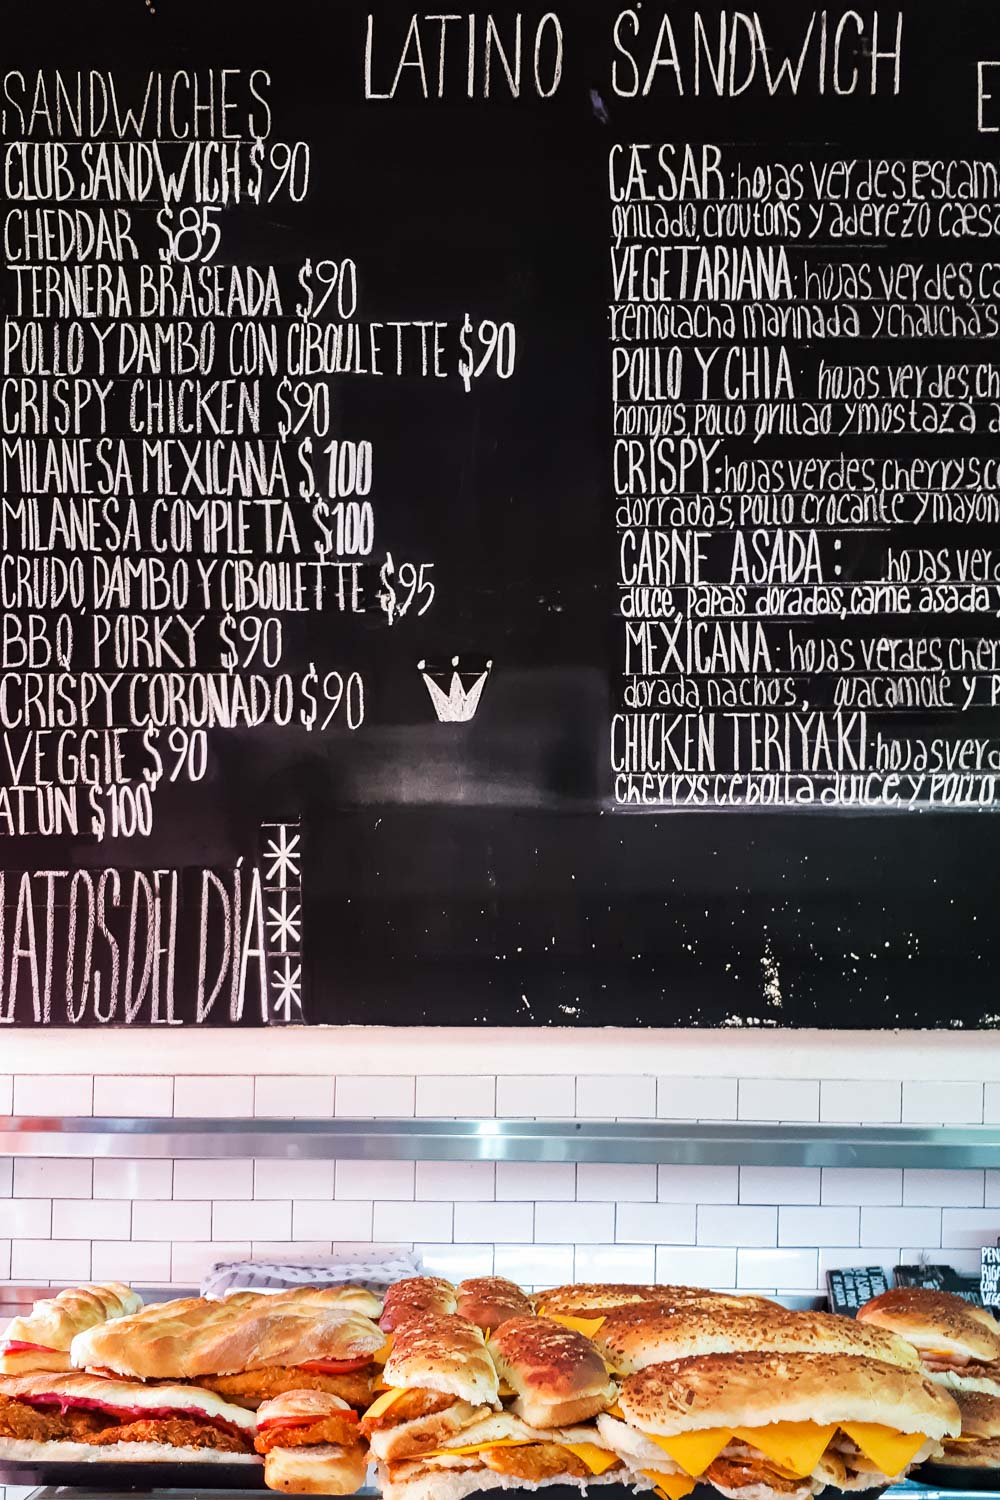 LATINO SANDWICH
E
SANDWICHES
CLUB SANDWICH $90
CHEDDAR $85
TERNERA BRASEADA $90
POLLO Y DAMBO CON CIBOULETTE $90
CRISPY CHICKEN $90
MILANESA MEXICANA $ 100
MILANESA COMPLETA $100
CRUDO, DAMBO Y CIBOULETTE $95
BBQ PORKY $90
CRISPY CORONADO $90
VEGGIE $90
ATÚN $100
LATOS DEL DÍA
CÆSAR: hojas verdes, escam
grillado, croutons y aderezo caesa
VEGETARIANA: hojas verdes, ca
remolacha marinada y chauchas
POLLO Y CHIA: hojas verdes, ch
hongos, pollo grillao y mostaza a
CRISPY: hojas verdes, cherrys, ce
dorradas, pollo crocante y mayon
CARNE ASADA: hojas verd
dulce, papas doradas, carne asada y
MEXICANA: hojas verdes, cher
dorada, nachos, guacamole y P
CHICKEN TERIYAKI: hojas verd
cherrys cebolla dulce, y pollo